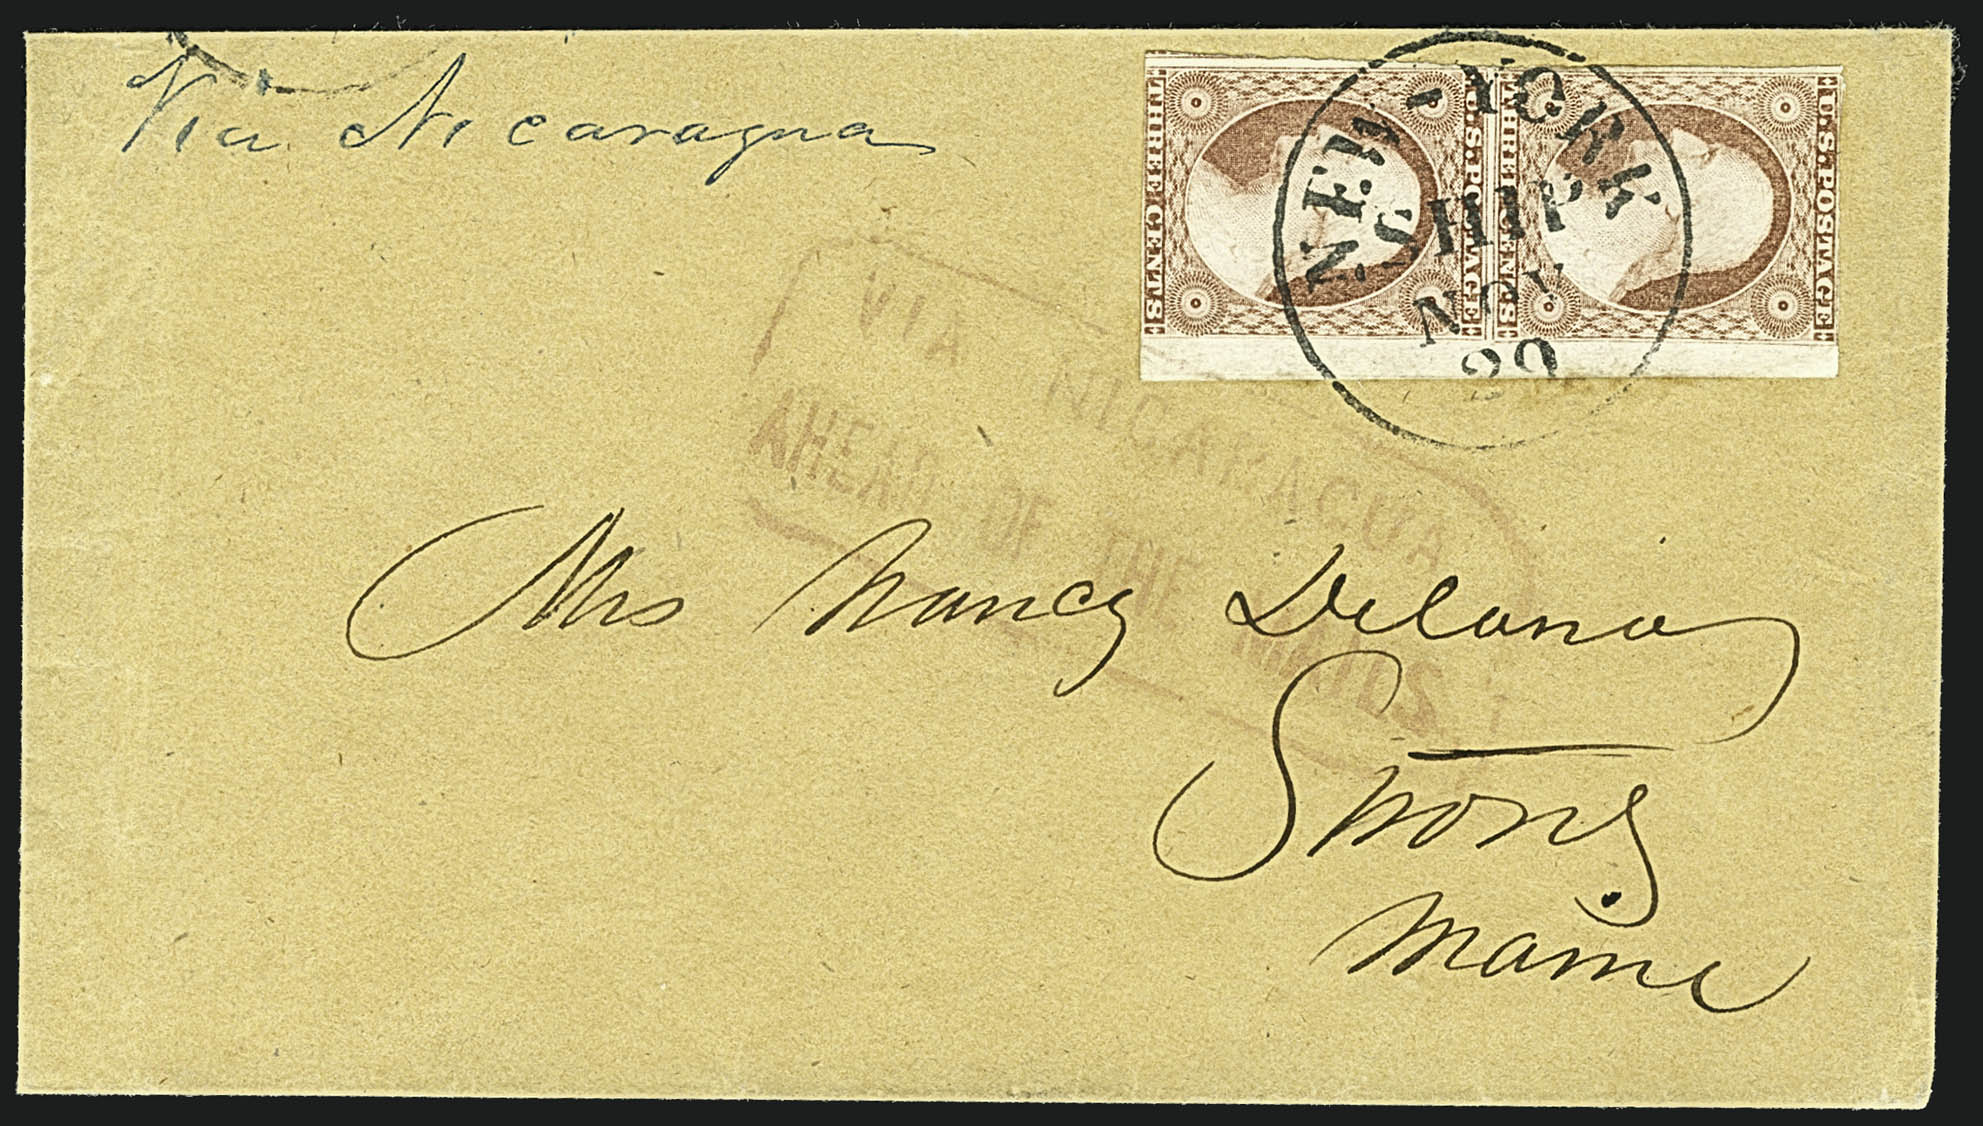 Via Nicaragua
U.S. POSTAGE
THREE CENTS
U.S. POSTAGE
THREE CENTS
NEW-YORK
SHIP
NOV
29
VIA NICARAGUA
AHEAD OF THE MAILS
Mrs Nancy Delano
Strong
Maine